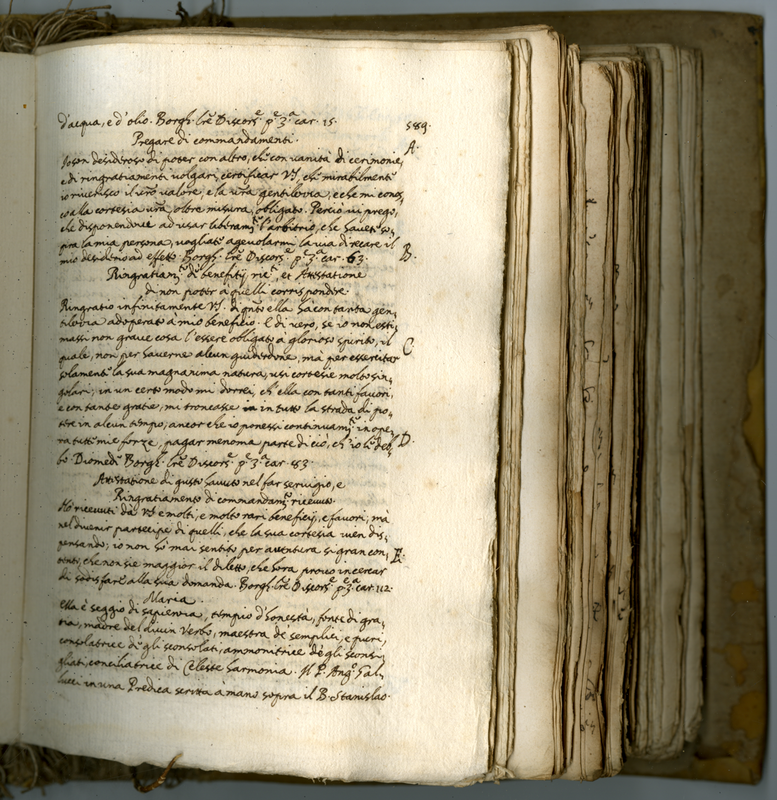 d'acqua, e d'olio. Borgh. lre Discors.e p.e 3.a car. 15.
589.
Pregare di commandamenti.
A.
Io son desideroso di poter con altro, che con vanità di cerimonie,
e di ringratiamenti volgari, certificar VS, che mirabilmente
io riverisco il vero valore, e la vra gentilezza, e che mi cono-
sco alla cortesia vra, oltre misura, obligato. Percio vi prego,
che disponendovi ad usar liberam.te l'arbitrio, che havete so-
pra la mia persona, vogliate agevolarmi la via di recare il
B.
mio desiderio ad effetto. Borgh. lre Discors.e p.e 3.a car. 63.
Ringratiam.to di beneficij, et Attestatione
di non poter à quelli corrispondere.
Ringratio infinitamente VS. di quto ella hà con tanta gen-
tilezza adoperato à mio beneficio. E di vero, se io non esti-
massi non grave cosa l'essere obligato à glorioso spirito, il
C
quale, non per haverne alcun guiderdone, mà per essercitar
solamente la sua magnanima natura, usi cortesie molto sin-
golari, in un certo modo mi dorrei, ch'ella con tanti favori,
e con tante gratie, mi troncasse in tutto la strada di po-
tere in alcun tempo, ancor che io ponessi continuam.te in ope-
ra tutte mie forze, pagar menoma parte di ciò, ch'io le deb-
D.
bo. Diomede Borgh. lre Discors.e p.e 3.a car. 83.
Attestatione di gusto havuto nel far servigio, e
Ringratiamento di commandam.to ricevuto.
Hò ricevuti da VS e molti, e molto rari beneficij, e favori; mà
nel divenir partecipe di quelli, che la sua cortesia vien dis-
pensando; io non hò mai sentito per aventura si gran con-
E.
tento, che non sie maggior il diletto, che hora provo in cercar
di sodisfare alla sua domanda. Borgh. lre Discors.e p.e 3.a car. 112.
Maria.
Ella è seggio di sapienza, tempio d'honestà, fonte di gra-
tia, madre del divin Verbo, maestra de semplici, e puri,
consolatrice de gli sconsolati, ammonitrice de gli sconsi-
gliati, conciliatrice di Celeste harmonia. Il P. Ang.o Gal-
lucci in una Predica scritta a mano sopra il B. Stanislao.